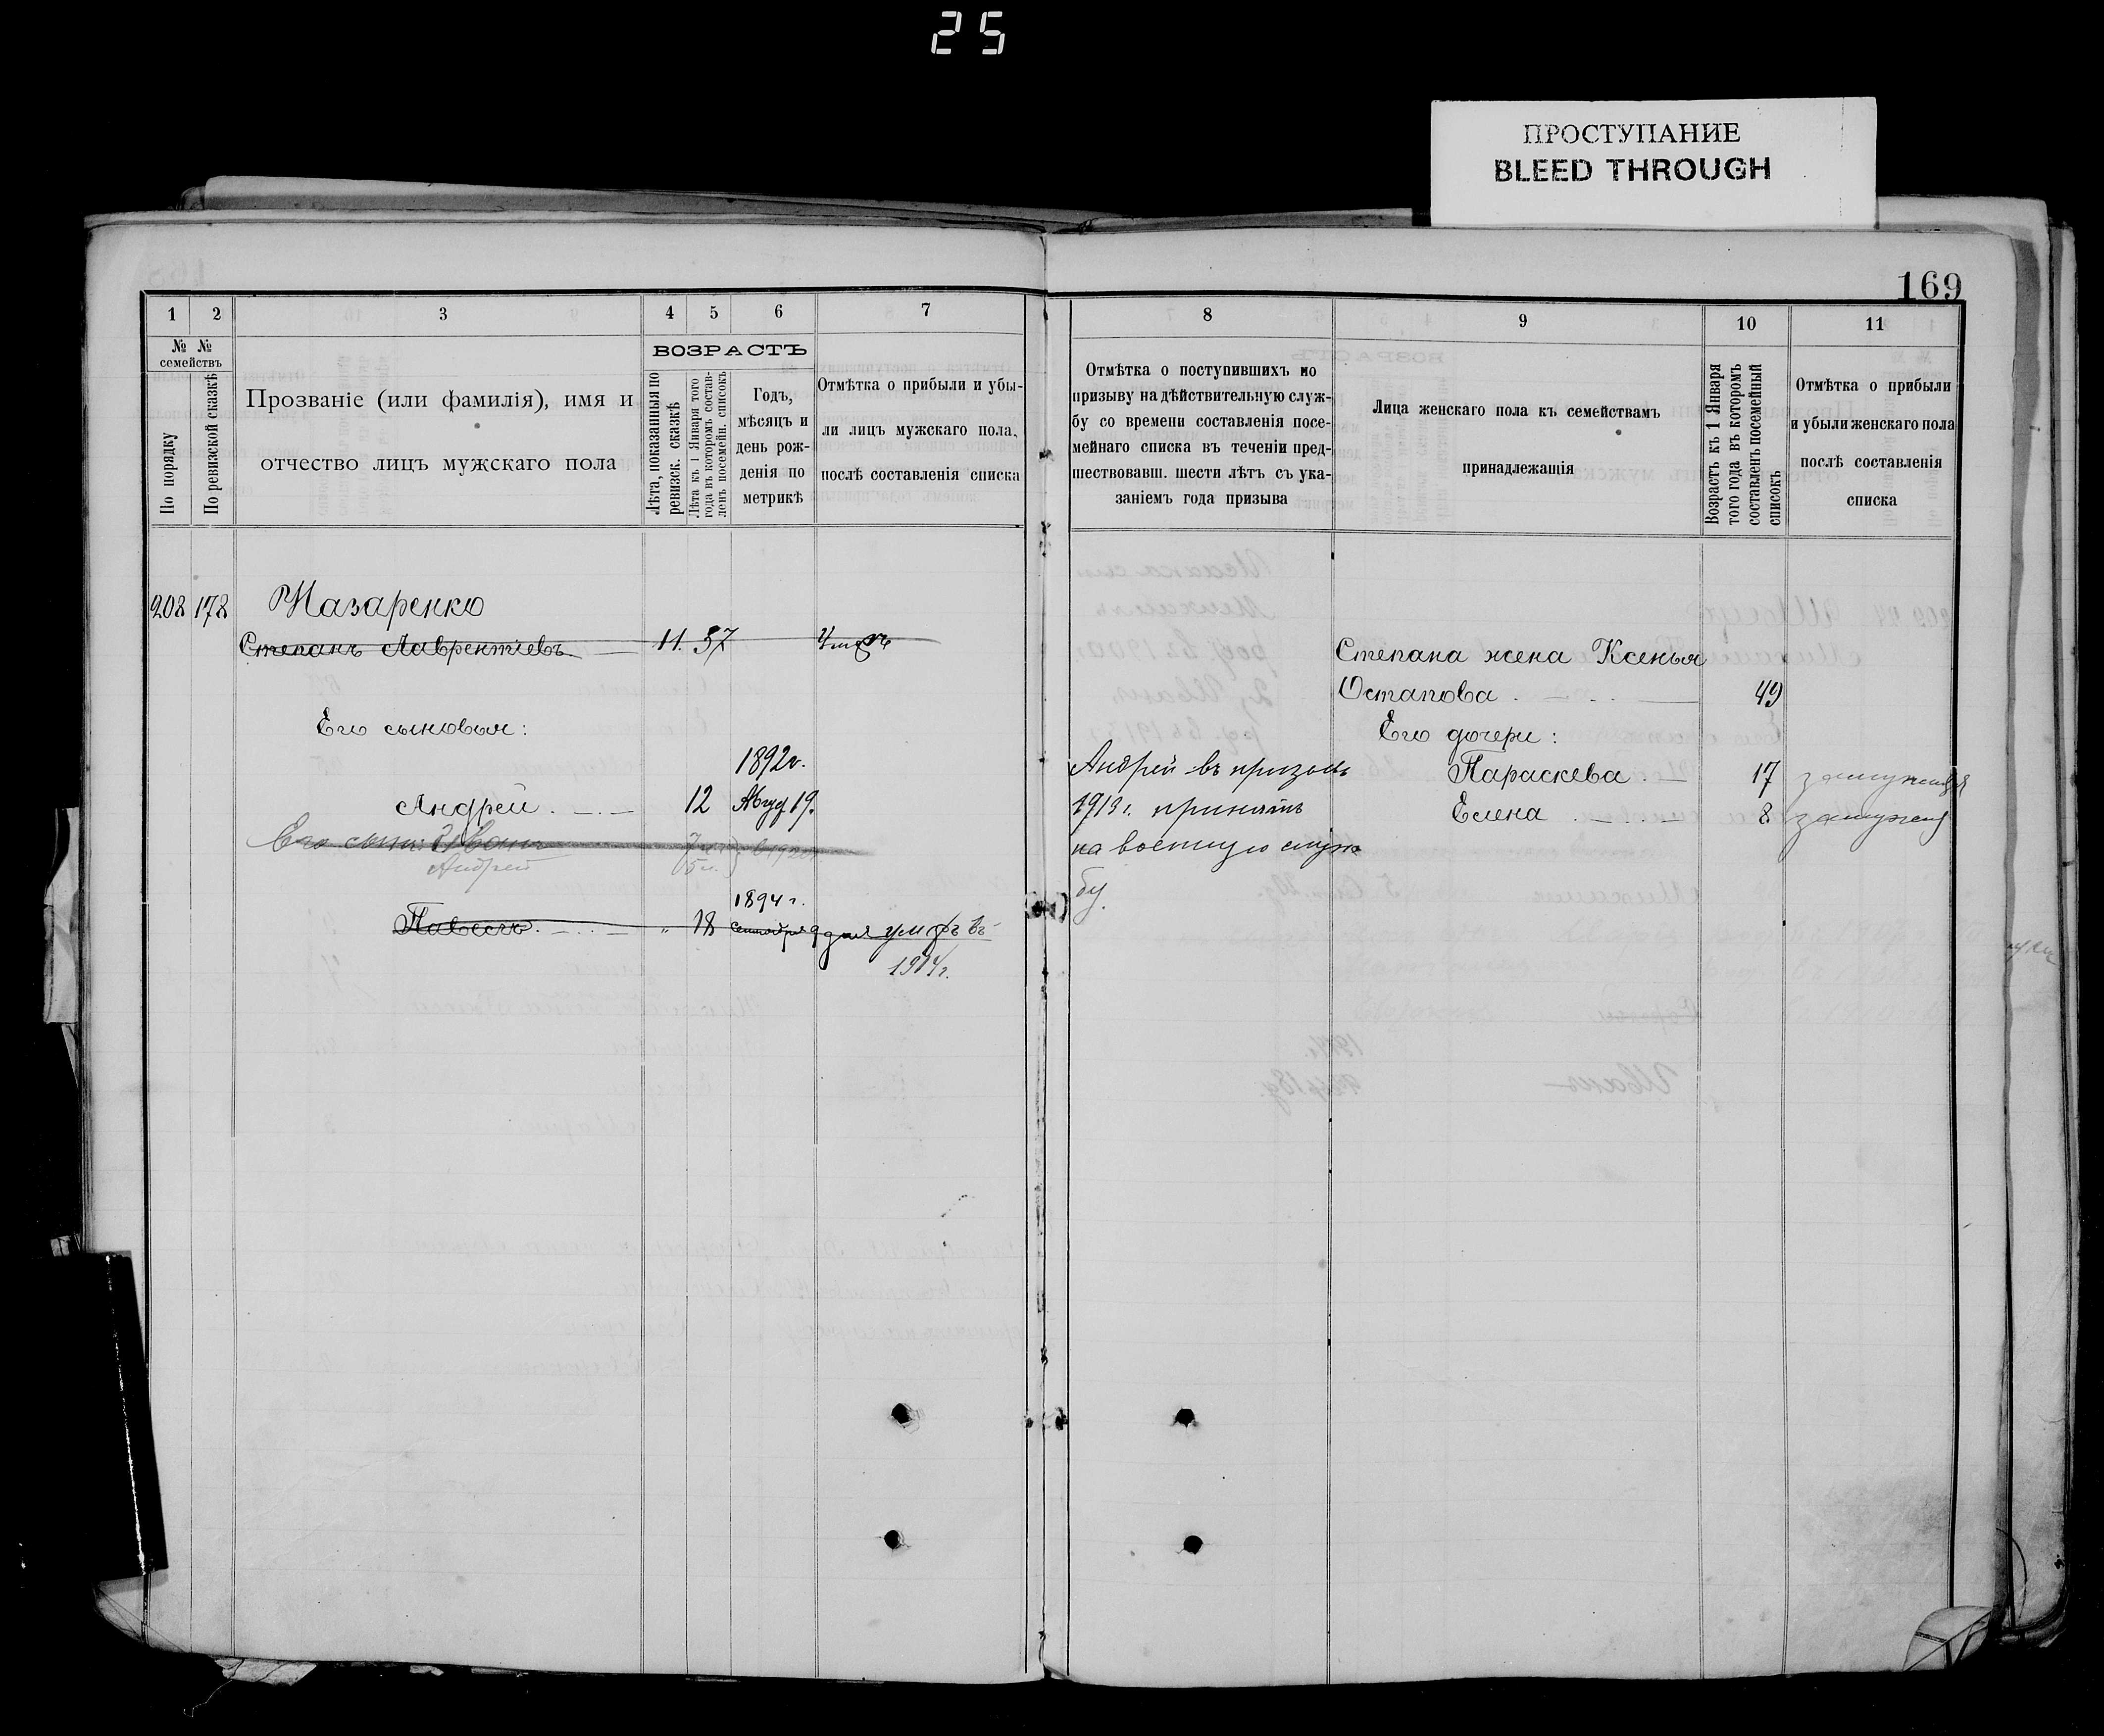 25
ПРОСТУПАНИЕ
BLEED THROUGH
169
1 2 3 4 5 6 7
8 9 10 11
№ № семействъ
По порядку
По ревизской сказкѣ
Прозваніе (или фамилія), имя и
отчество лицъ мужскаго пола
ВОЗРАСТЪ
Лѣта, показанныя по
ревизск. сказкѣ
Лѣта къ 1 Января того
года въ которомъ состав-
ленъ посемейн. списокъ
Годъ,
мѣсяцъ и
день рож-
денія по
метрикѣ
Отмѣтка о прибыли и убы-
ли лицъ мужскаго пола,
послѣ составленія списка
Отмѣтка о поступившихъ по
призыву на дѣйствительную служ-
бу со времени составленія посе-
мейнаго списка въ теченіи пред-
шествовавш. шести лѣтъ съ ука-
заніемъ года призыва
Лица женскаго пола къ семействамъ
принадлежащія
Возрастъ къ 1 Января
того года въ которомъ
составленъ посемейный
списокъ
Отмѣтка о прибыли
и убыли женскаго пола
послѣ составленія
списка
208 178 Назаренко
Степанъ Лаврентіевъ 11. 57
Его сыновья:
1892 г.
Андрей 12 Авгус 19.
Его сынъ: Иванъ
Андрей
1894 г.
Павелъ „ 18 Сентября 9 дня умеръ въ
1914 г.
Андрей въ призывъ
1913 г. принятъ
на военную служ
бу.
Степана жена Ксенья
Остапова 49
Его дочери:
Параскева 17 замужняя
Елена 8 замужня